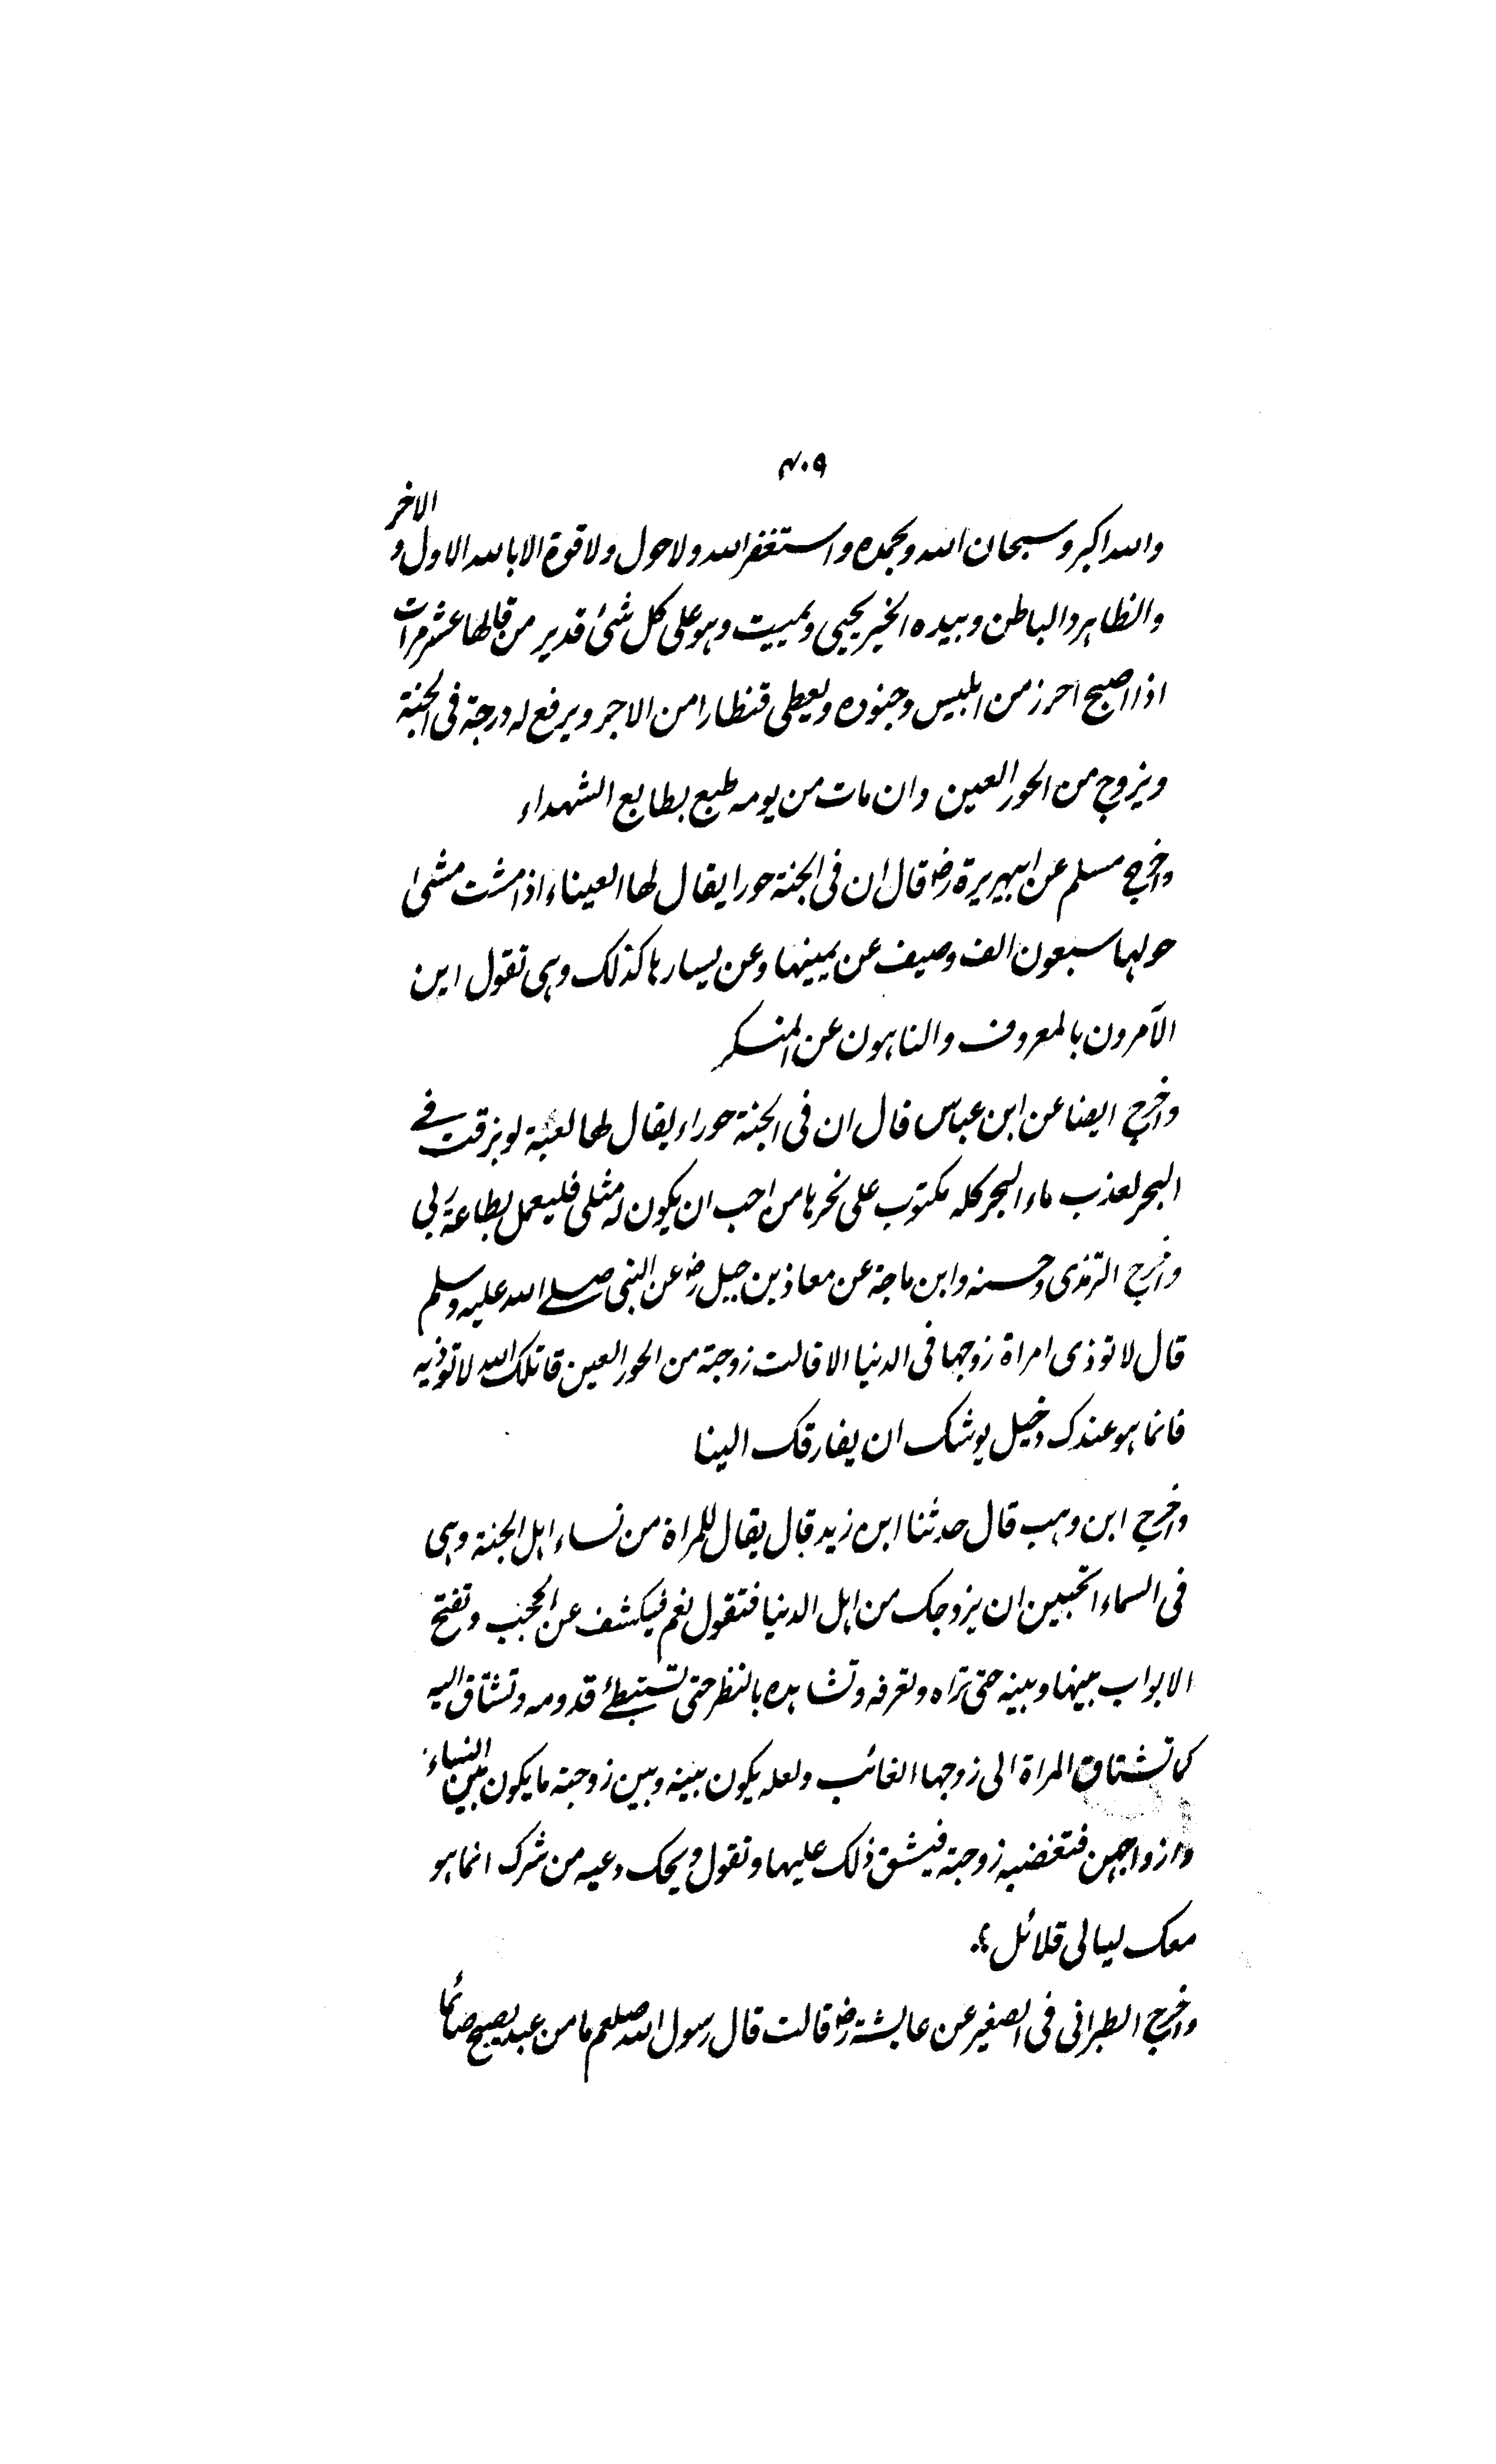 ۴۰۹
والله اكبر وسبحان الله وبحمده واستغفر الله ولا حول ولا قوة الا بالله الاول و الاخر
والظاهر والباطن وبيده الخير يحيى ويميت وهو على كل شئ قدير من قالها عشر مرات
اذا اصبح احرز من ابليس وجنوده ويعطى قنطارا من الاجر ويرفع له درجة فى الجنة
ويزوج من الحور العين وان مات من يومه طبع بطابع الشهداء
واخرج مسلم عن ابيهريرة رض قال ان فى الجنة حورا يقال لها العيناء اذا مشت مشى
حولها سبعون الف وصيف عن يمينها وعن يسارها كذلك وهى تقول اين
الآمرون بالمعروف والناهون عن المنكر
واخرج ايضا عن ابن عباس قال ان فى الجنة حوراء يقال لها لعبة لو بزقت فے
البحر لعذب ماء البحر كله مكتوب على نحرها من احب ان يكون له مثلى فليعمل بطاعة ربى
واخرج الترمذى وحسنه وابن ماجة عن معاذ بن جبل رض عن النبى صلے الله عليه وسلم
قال لا توذى امراة زوجها فى الدنيا الا قالت زوجة من الحور العين قاتلك الله لا توذيه
فانما هو عندك دخيل يوشك ان يفارقك الينا
واخرج ابن وهب قال حدثنا ابن زيد قال يقال للمراة من نساء اهل الجنة وهى
فى السماء اتحبين ان يزوجك من اهل الدنيا فتقول نعم فيكشف عن الحجب وتفتح
الابواب بينها وبينه حتى تراه وتعرفه وتشاهده بالنظر حتى تستبطئ قدومه وتشتاق اليه
كما تشتاق المراة الى زوجها الغائب ولعله يكون بينه وبين زوجته ما يكون بين النساء
وازواجهن فتغضبه زوجته فيشق ذلك عليها وتقول ويحك دعيه من شرك انما هو
معك ليالى قلائل
واخرج الطبرانى فى الصغير عن عايشة رض قالت قال رسول الله صلعم ما من عبد يصبح صائما